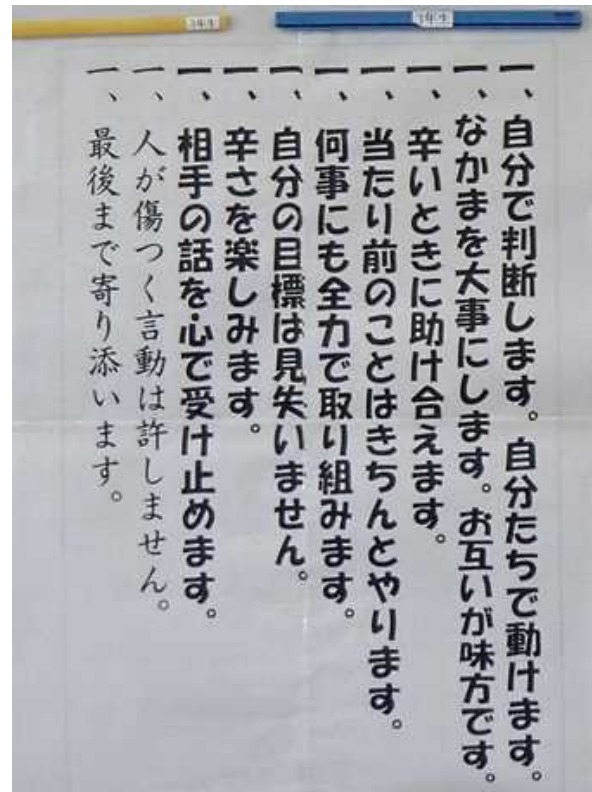 一、自分で判断します。自分たちで動けます。
一、なかまを大事にします。お互いが味方です。
一、辛いときに助け合えます。
一、当たり前のことはきちんとやります。
一、何事にも全力で取り組みます。
一、自分の目標は見失いません。
一、辛さを楽しみます。
一、相手の話を心で受け止めます。
一、人が傷つく言動は許しません。
一、最後まで寄り添います。